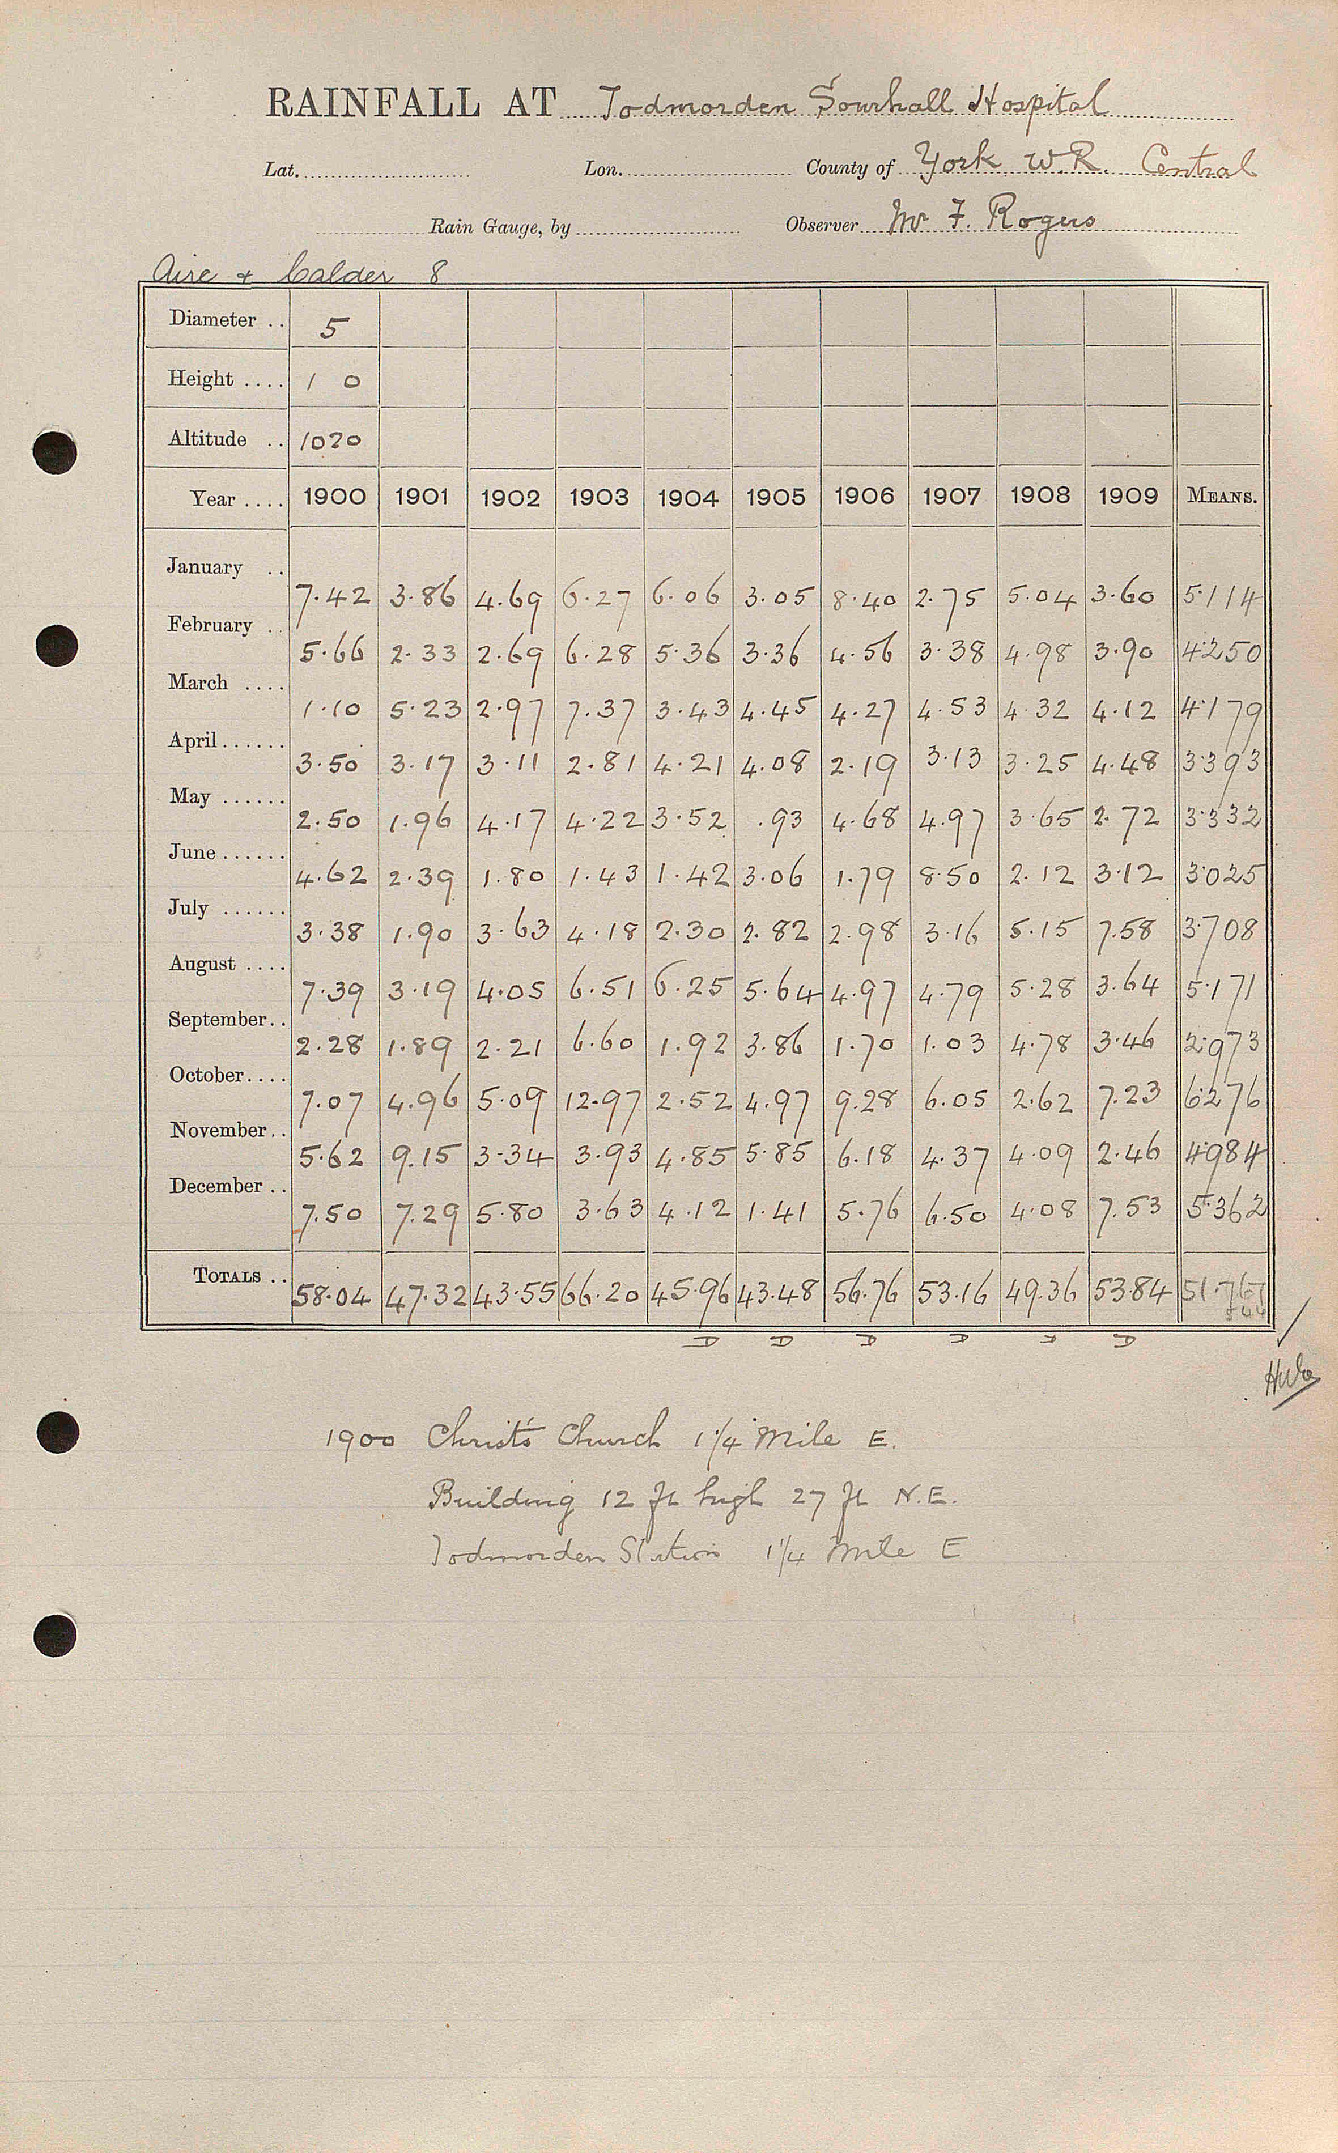 RAINFALL AT Todmorden Sourhall Hospital
Lat. Lon. County of York W.R. Central
Rain Gauge, by Observer Mr F. Rogers
Aire & Calder 8
Diameter .. 5
Height .... 1 0
Altitude .. 1020
Year .... 1900 1901 1902 1903 1904 1905 1906 1907 1908 1909 MEANS.
January .. 7.42 3.86 4.69 6.27 6.06 3.05 8.40 2.75 5.04 3.60 5.114
February .. 5.66 2.33 2.69 6.28 5.36 3.36 4.56 3.38 4.98 3.90 4.250
March .... 1.10 5.23 2.97 7.37 3.43 4.45 4.27 4.53 4.32 4.12 4.179
April...... 3.50 3.17 3.11 2.81 4.21 4.08 2.19 3.13 3.25 4.48 3.393
May ...... 2.50 1.96 4.17 4.22 3.52 .93 4.68 4.97 3.65 2.72 3.332
June...... 4.62 2.39 1.80 1.43 1.42 3.06 1.79 8.50 2.12 3.12 3.025
July ...... 3.38 1.90 3.63 4.18 2.30 2.82 2.98 3.16 5.15 7.58 3.708
August .... 7.39 3.19 4.05 6.51 6.25 5.64 4.97 4.79 5.28 3.64 5.171
September.. 2.28 1.89 2.21 6.60 1.92 3.86 1.70 1.03 4.78 3.46 2.973
October.... 7.07 4.96 5.09 12.97 2.52 4.97 9.28 6.05 2.62 7.23 6.276
November.. 5.62 9.15 3.34 3.93 4.85 5.85 6.18 4.37 4.09 2.46 4.984
December .. 7.50 7.29 5.80 3.63 4.12 1.41 5.76 6.50 4.08 7.53 5.362
TOTALS .. 58.04 47.32 43.55 66.20 45.96 43.48 56.76 53.16 49.36 53.84 51.767
D D D D D D
1900 Christ's Church 1 1/4 Mile E.
Building 12 ft high 27 ft N.E.
Todmorden Station 1 1/4 Mile E